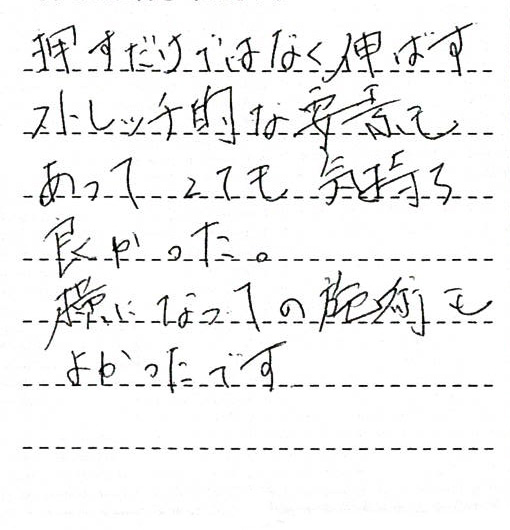 押すだけではなく伸ばす
ストレッチ的な要素も
あって とても 気持ち
良かった。
横になっての施術も
よかったです